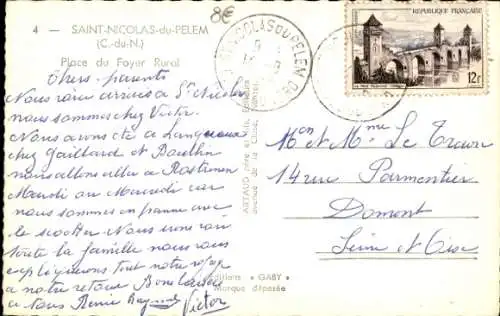 4 - SAINT-NICOLAS-du-PELEM
(C.-du-N.)
Place du Foyer Rural
8€
parents
Nous arrivés à St Nicolas
nous sommes chez Victor.
Nous avons été a
chez Gaillard et
nous allons aller a Rostrenen
Mardi ou Mercredi car
nous sommes en panne avec
le scooter Nous irons voir
toute la famille nous vous
expliquerons tout notre voyage
a notre retour Bons baisers
a tous Renée Raymond
Victor
ARTAUD père et fils, Éditeurs
avenue de la Close, Nantes
Éditions « GABY »
Marque déposée
St NICOLAS DU PELEM
REPUBLIQUE FRANÇAISE
12f
Mon et Mme Le
14 rue Parmentier
Domont
Seine et Oise